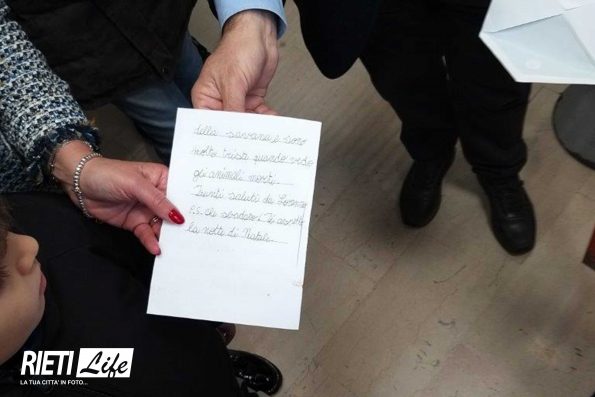 della savana e sono
molto triste quando vedo
gli animali morti.
Tanti saluti da Lorenzo
P.S. Ti aspetto
la notte di Natale.
RIETI Life
LA TUA CITTA' IN FOTO...